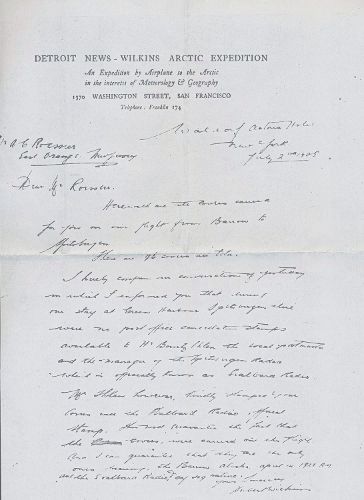 DETROIT NEWS - WILKINS ARCTIC EXPEDITION
An Expedition by Airplane to the Arctic
in the interests of Meteorology & Geography
1570 WASHINGTON STREET, SAN FRANCISCO
Telephone: Franklin 174
Waldorf Astoria Hotel
New York
July 2nd 1928
A C Roessler
East Orange New Jersey
Dear Mr Roessler.
Herewith are the covers carried
for you on our flight from Barrow to
Spitsbergen
There are of covers
I hereby confirm our conversation of yesterday
in which I informed you that during
our stay at Green Harbour Spitsbergen there
were no post office cancellation stamps
available to Mr the local postmaster
and the manager of the Spitsbergen Radio
which is officially known as Svalbard Radio.
Mr however, kindly stamped your
covers with the Svalbard Radio, official
stamp. guarantee the fact that
the covers were carried on the flight
and I can guarantee that they are the only
ones bearing the Barrow Alaska, April 1928
and the Svalbard Radio